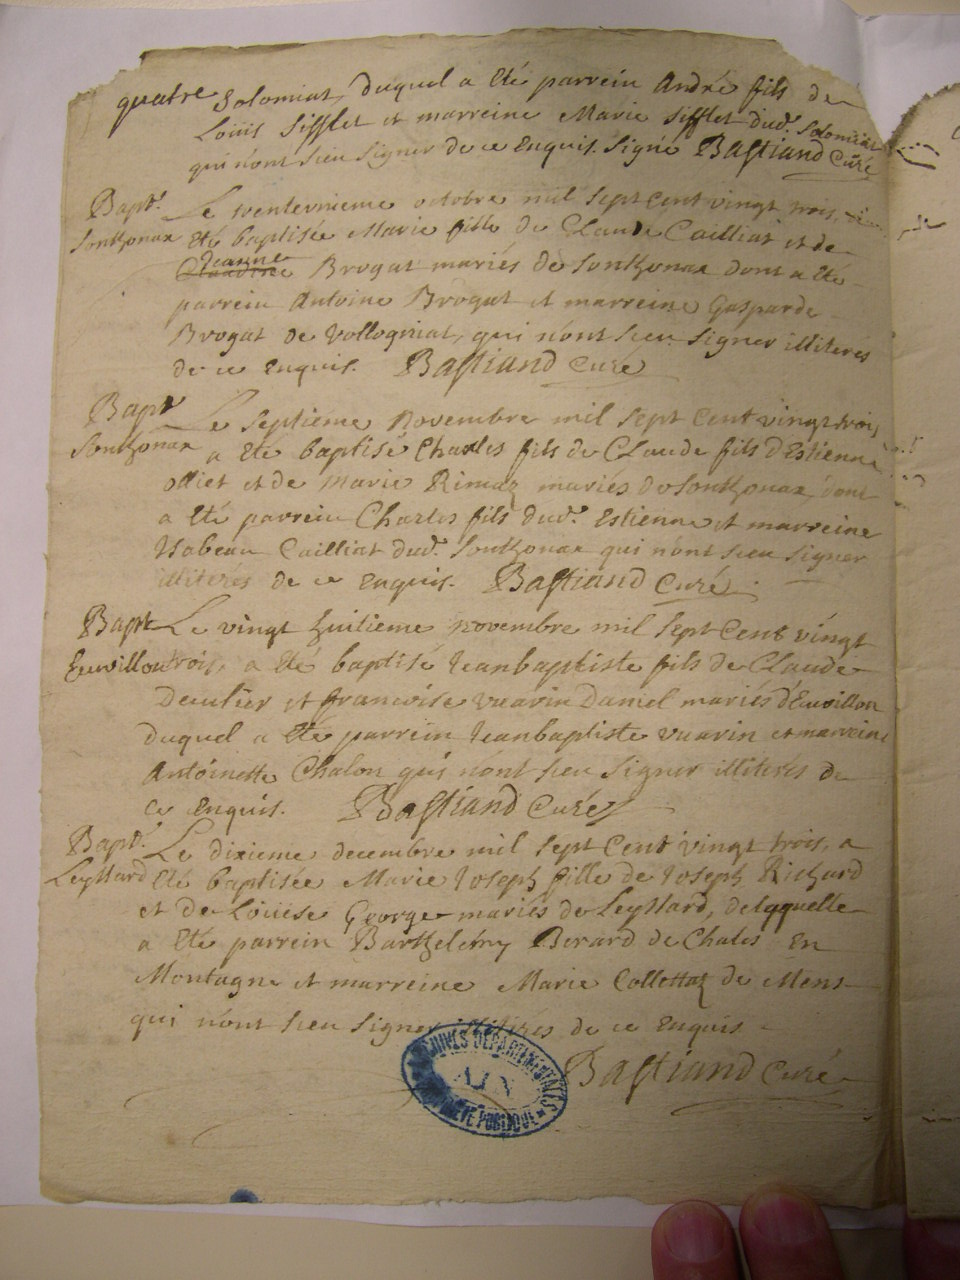 quatre
Solomiat, duquel a Eté parrein André fils de
Loüis Sifflet et marreine Marie Sifflet dud. Solomiat
qui n'ont sceu signer de ce Enquis. Signé Bastiand Curé
Bapt. Le trenteunieme octobre mil sept Cent vingt trois, a
Sonthonax Eté baptisée Marie fille de Claude Cailliat et de
Jeanne
Claudine Brogat mariés de Sonthonax dont a Eté
parrein Antoine Brogat et marreine Gasparde
Brogat de Vollogniat, qui n'ont sceu signer illiterés
de ce Enquis. Bastiand Curé
Bapt Le Septiéme Novembre mil sept Cent vingt trois
Sonthonax a Eté baptisé Charles fils de Claude fils d'Estienne
olliet et de Marie Rimaz mariés de Sonthonax, dont
a Eté parrein Charles fils dud. Estienne et marreine
Isabeau Cailliat dud. Sonthonax qui n'ont sceu signer
illiterés de ce Enquis. Bastiand Curé
Bapt Le vingt huitieme novembre mil sept Cent vingt
trois, a Eté baptisé Jeanbaptiste fils de Claude
et francoise vuarin Daniel mariés
duquel a Eté parrein Jeanbaptiste vuarin et marreine
Antoinette Chalon qui n'ont sceu signer illiterés de
ce Enquis. Bastiand Curé
Bapt. Le dixieme decembre mil sept Cent vingt trois, a
Leyssard Eté baptisée Marie Joseph fille de Joseph Richard
et de Loüise George mariés de Leyssard, delaquelle
a Eté parrein Barthelémy Berard de Chales En
Montagne et marreine Marie Collettaz de Mens
qui n'ont sceu signer illiterés de ce Enquis
Bastiand Curé
ARCHIVES DÉPARTEMENTALES
AIN
PROPRIÉTÉ PUBLIQUE